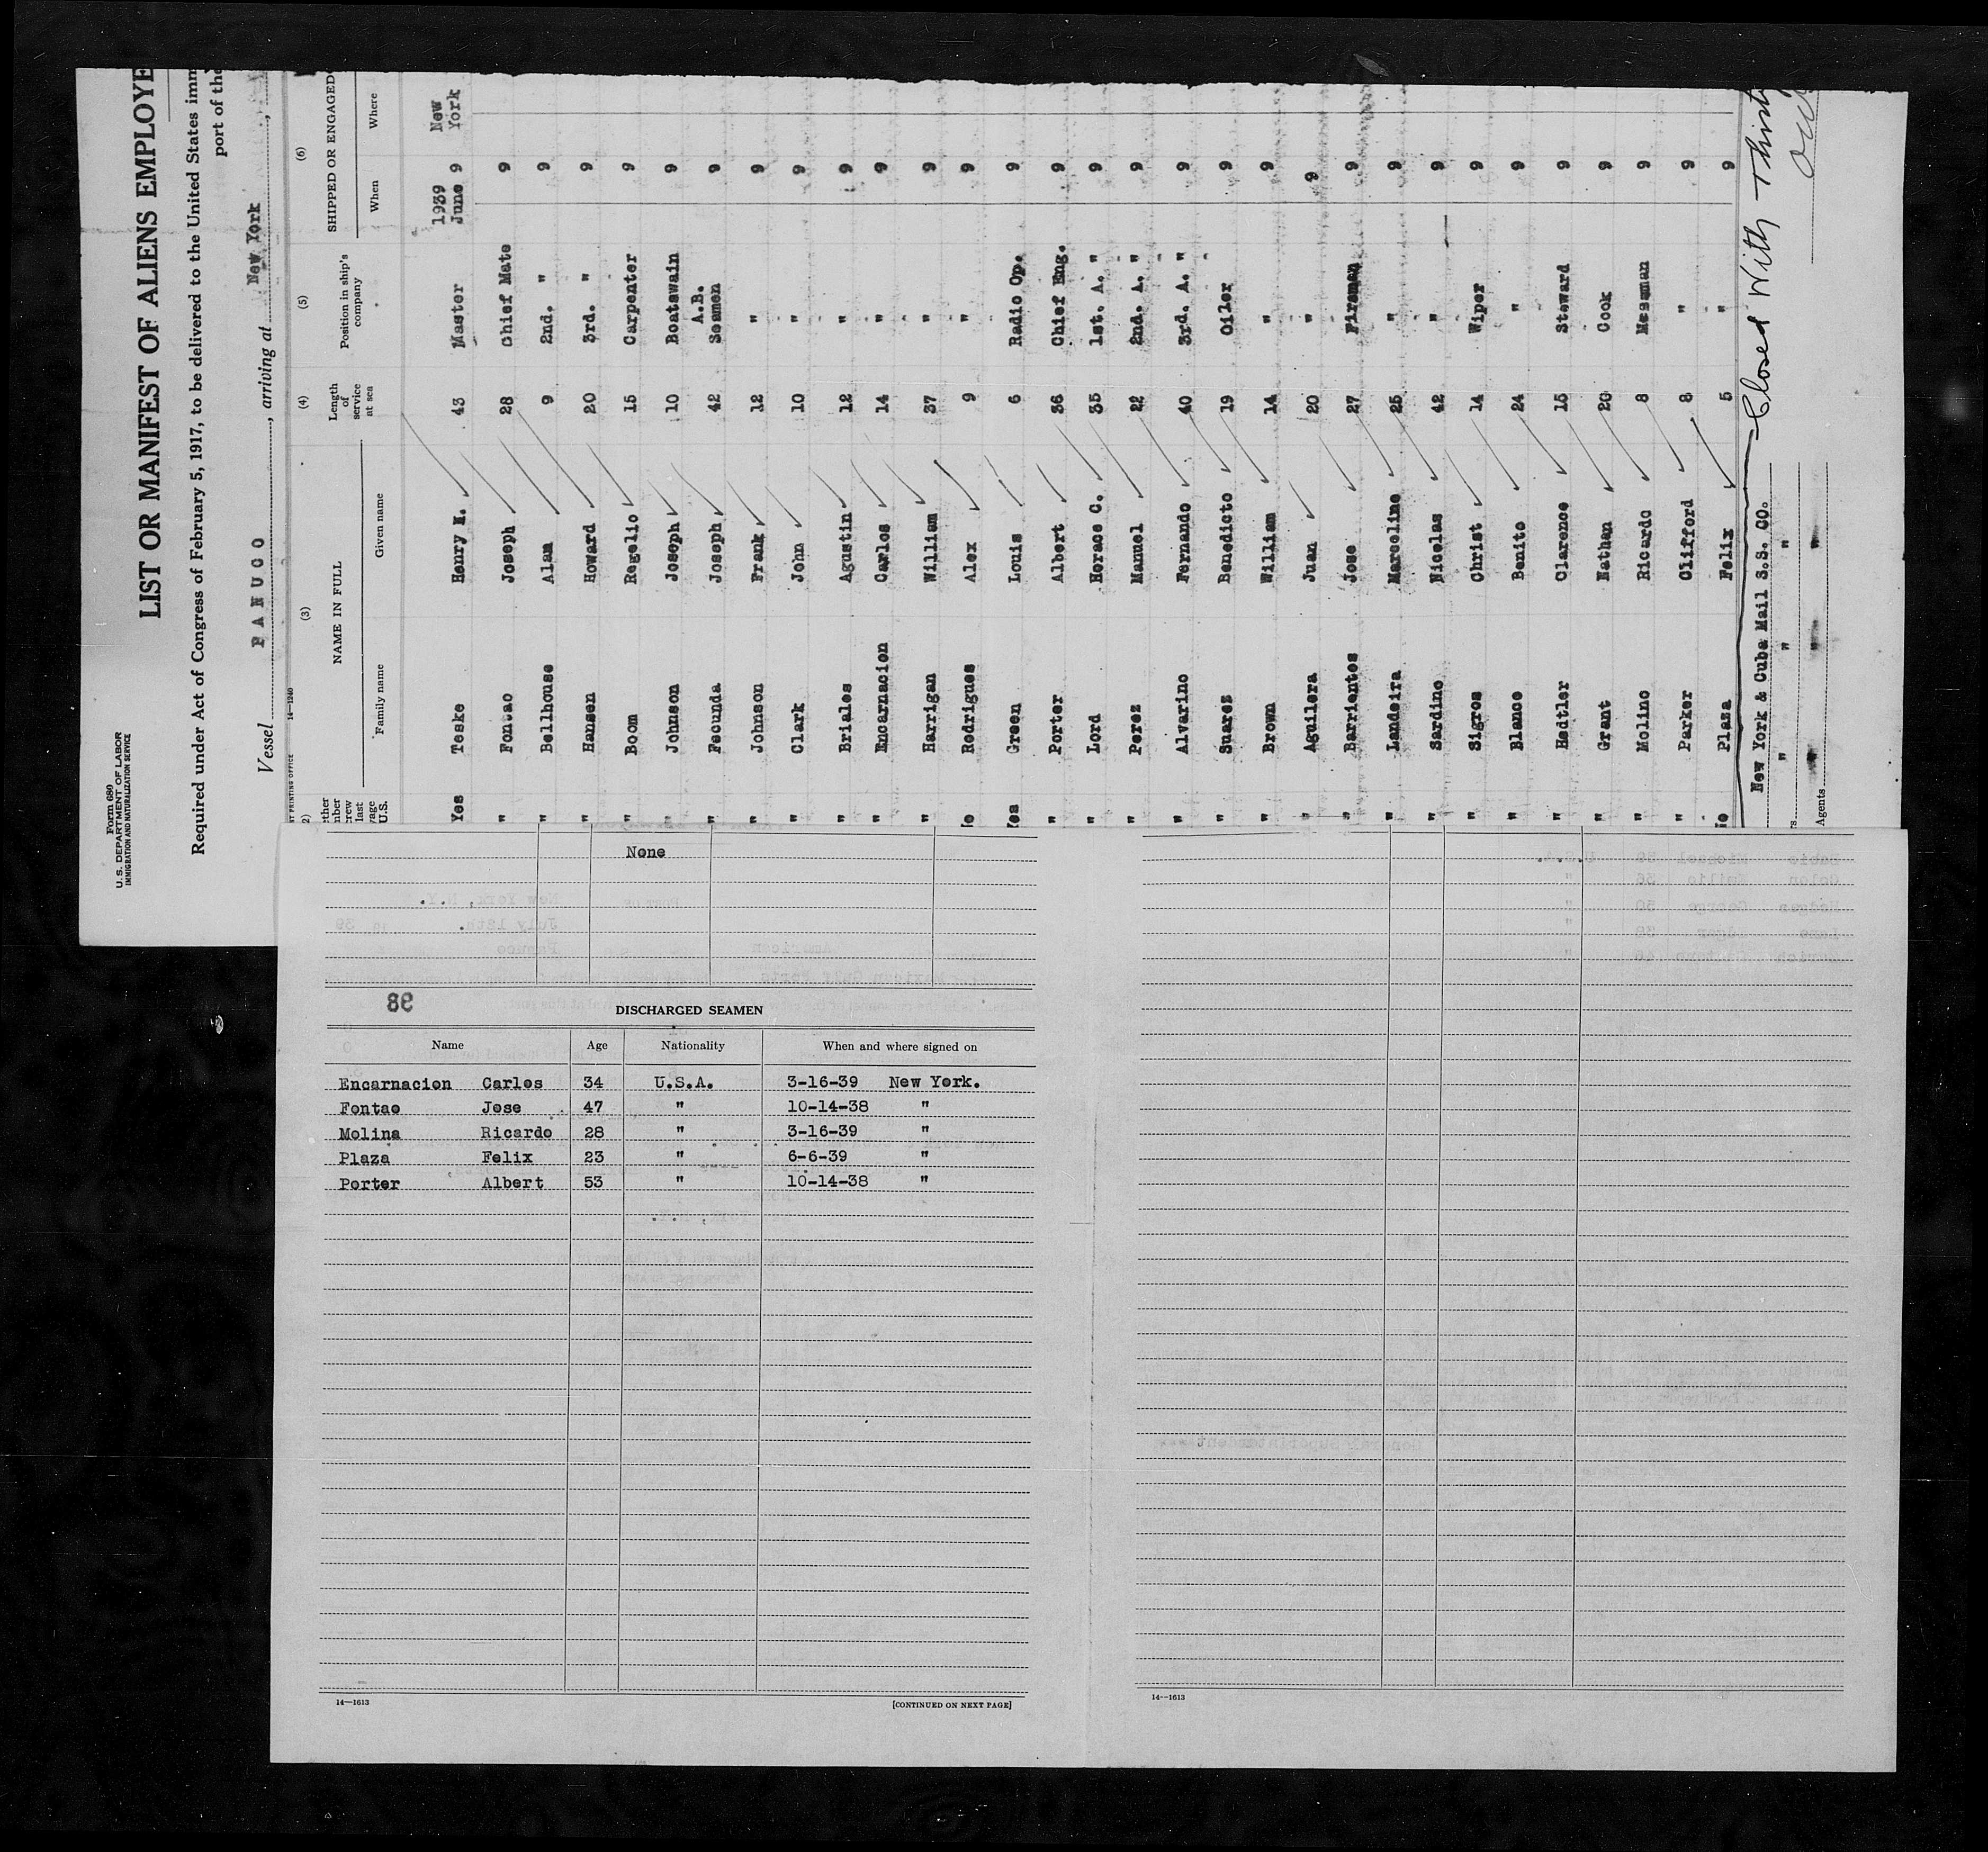 Form 680
U. S. DEPARTMENT OF LABOR
IMMIGRATION AND NATURALIZATION SERVICE
LIST OR MANIFEST OF ALIENS EMPLOYE
Required under Act of Congress of February 5, 1917, to be delivered to the United States imm
port of the
Vessel PANUCO, arriving at New York,
PRINTING OFFICE 14—1240
(3) (4) (5) (6)
NAME IN FULL Length of service at sea Position in ship's company SHIPPED OR ENGAGED
Family name Given name When Where
1939 New
Yes Teske Henry E. 43 Master June 9 York
" Fontao Joseph 28 Chief Mate 9
" Bellhouse Alam 9 2nd. " 9
" Hansen Howard 20 3rd. " 9
" Boom Rogelio 15 Carpenter 9
" Johnson Joseph 10 Boatswain 9
A.B.
" Fecunda Joseph 42 Seamen 9
" Johnson Frank 12 " 9
" Clark John 10 " 9
" Briales Agustin 12 " 9
" Encarnacion Carlos 14 " 9
" Harrigan William 37 " 9
No Rodrigues Alex 9 " 9
Yes Green Louis 6 Radio Op. 9
" Porter Albert 36 Chief Eng. 9
" Lord Horace C. 35 1st. A. " 9
" Perez Manuel 22 2nd. A. " 9
" Alvarino Fernando 40 3rd. A. " 9
" Suarez Benedicto 19 Oiler 9
" Brown William 14 " 9
" Aguilera Juan 20 " 9
" Barrientos Jose 27 Fireman 9
" Landeira Marceline 25 " 9
" Sardino Nicolas 42 " 9
" Sigros Christ 14 Wiper 9
" Blanco Benito 24 " 9
" Hedtler Clarence 15 Steward 9
" Grant Nathan 20 Cook 9
" Molino Ricardo 8 Messman 9
" Parker Clifford 8 " 9
No Plaza Felix 5 " 9
Closed With Thirty
New York & Cuba Mail S.S. CO.
" " "
Agents " " "
None
98
DISCHARGED SEAMEN
Name Age Nationality When and where signed on
Encarnacion Carlos 34 U.S.A. 3-16-39 New York.
Fontao Jose 47 " 10-14-38 "
Molina Ricardo 28 " 3-16-39 "
Plaza Felix 23 " 6-6-39 "
Porter Albert 53 " 10-14-38 "
14—1613 [CONTINUED ON NEXT PAGE]
14—1613